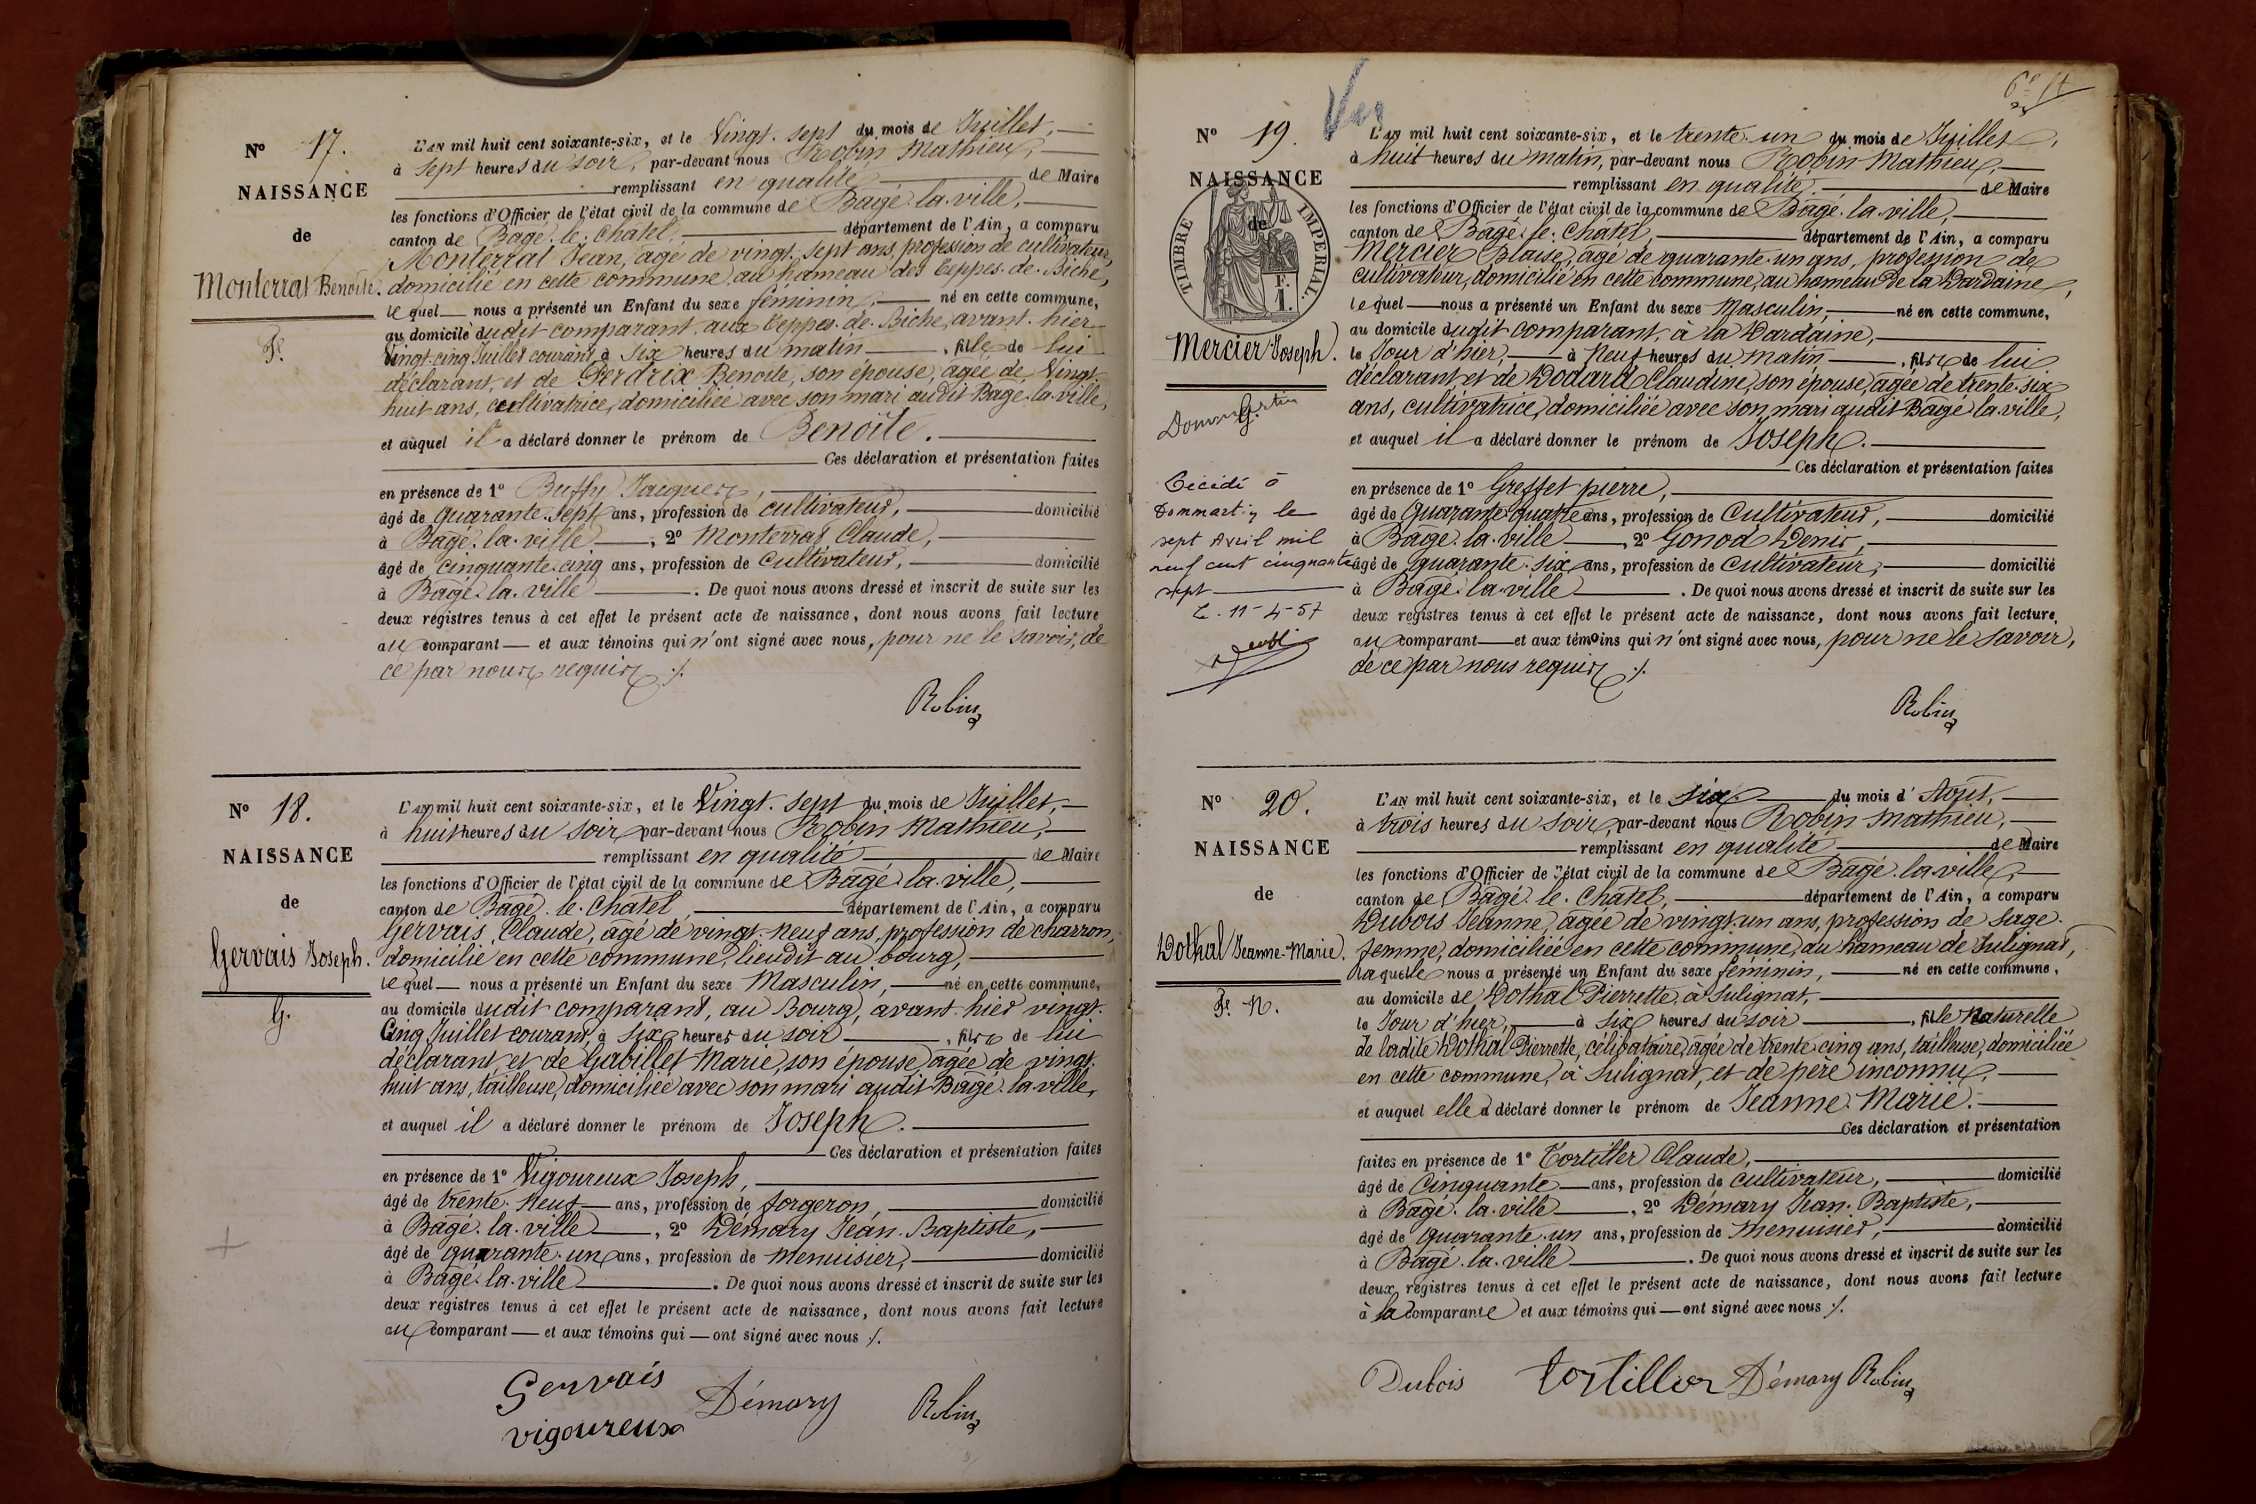 N° 17.
NAISSANCE
de
Monterrat Benoite.
F.
L'AN mil huit cent soixante-six, et le Vingt-sept du mois de Juillet,
à sept heures du soir, par-devant nous Robin Mathieu,
remplissant en qualité de Maire
les fonctions d'Officier de l'état civil de la commune de Bagé-la-ville,
canton de Bagé-le-Chatel, département de l'Ain, a comparu
Monterrat Jean, agé de vingt-sept ans, profession de cultivateur,
domicilié en cette commune, au hameau des Teppes-de-Biche,
lequel nous a présenté un Enfant du sexe féminin, né en cette commune,
au domicile dudit comparant, aux Teppes-de-Biche, avant-hier
Vingt-cinq Juillet courant, à six heures du matin, fille de lui
déclarant, et de Perdrix Benoite, son épouse, agée de Vingt-
huit ans, cultivatrice, domiciliée avec son mari audit Bagé-la-ville,
et auquel il a déclaré donner le prénom de Benoite.
Ces déclaration et présentation faites
en présence de 1° Buffy Jacques,
âgé de Quarante-sept ans, profession de cultivateur, domicilié
à Bagé-la-ville, 2° Monterrat Claude,
âgé de cinquante-cinq ans, profession de cultivateur, domicilié
à Bagé-la-ville. De quoi nous avons dressé et inscrit de suite sur les
deux registres tenus à cet effet le présent acte de naissance, dont nous avons fait lecture
au comparant et aux témoins qui n'ont signé avec nous, pour ne le savoir, de
ce par nous requis ./.
Robin
N° 18.
NAISSANCE
de
Gervais Joseph.
G.
L'AN mil huit cent soixante-six, et le Vingt-sept du mois de Juillet,
à huit heures du soir par-devant nous Robin Mathieu,
remplissant en qualité de Maire
les fonctions d'Officier de l'état civil de la commune de Bagé-la-ville,
canton de Bagé-le-Chatel, département de l'Ain, a comparu
Gervais Claude, agé de vingt-neuf ans, profession de charron,
domicilié en cette commune, lieudit au bourg,
lequel nous a présenté un Enfant du sexe Masculin, né en cette commune,
au domicile dudit comparant, au Bourg, avant-hier vingt-
Cinq Juillet courant, à six heures du soir, fils de lui
déclarant, et de Gabillet Marie, son épouse, agée de vingt-
huit ans, tailleuse, domiciliée avec son mari audit Bagé-la-ville,
et auquel il a déclaré donner le prénom de Joseph.
Ces déclaration et présentation faites
en présence de 1° Vigoureux Joseph,
âgé de trente-neuf ans, profession de forgeron, domicilié
à Bagé-la-ville, 2° Démary Jean-Baptiste,
âgé de quarante-un ans, profession de menuisier, domicilié
à Bagé-la-ville. De quoi nous avons dressé et inscrit de suite sur les
deux registres tenus à cet effet le présent acte de naissance, dont nous avons fait lecture
au comparant et aux témoins qui ont signé avec nous ./.
Gervais
Démary
Robin
vigoureux
N° 19.
NAISSANCE
de
TIMBRE IMPERIAL.
F.
1.
Mercier Joseph.
G.
Décédé à
Dommartin le
sept Avril mil
neuf cent cinquante
sept
L. 11-4-57
L'AN mil huit cent soixante-six, et le trente-un du mois de Juillet,
à huit heures du matin, par-devant nous Robin Mathieu,
remplissant en qualité de Maire
les fonctions d'Officier de l'état civil de la commune de Bagé-la-ville,
canton de Bagé-le-Chatel, département de l'Ain, a comparu
Mercier Blaise, agé de quarante-un ans, profession de
cultivateur, domicilié en cette commune, au hameau de la Dardaine,
lequel nous a présenté un Enfant du sexe Masculin, né en cette commune,
au domicile dudit comparant, à la Dardaine,
le Jour d'hier, à neuf heures du matin, fils de lui
déclarant et de Dodard Claudine, son épouse, agée de trente-six
ans, cultivatrice, domiciliée avec son mari audit Bagé-la-ville,
et auquel il a déclaré donner le prénom de Joseph.
Ces déclaration et présentation faites
en présence de 1° Greffet pierre,
âgé de Quarante-quatre ans, profession de Cultivateur, domicilié
à Bagé-la-ville, 2° Gonod Denis,
âgé de quarante-six ans, profession de cultivateur, domicilié
à Bagé-la-ville. De quoi nous avons dressé et inscrit de suite sur les
deux registres tenus à cet effet le présent acte de naissance, dont nous avons fait lecture
au comparant et aux témoins qui n'ont signé avec nous, pour ne le savoir,
de ce par nous requis ./.
Robin
N° 20.
NAISSANCE
de
Dothal Jeanne-Marie.
F. N.
L'AN mil huit cent soixante-six, et le six du mois d'Aout,
à trois heures du soir, par-devant nous Robin Mathieu,
remplissant en qualité de Maire
les fonctions d'Officier de l'état civil de la commune de Bagé-la-ville,
canton de Bagé-le-Chatel, département de l'Ain, a comparu
Dubois Jeanne, agée de vingt-un ans, profession de sage-
femme, domiciliée en cette commune, au hameau de Sulignat,
laquelle nous a présenté un Enfant du sexe féminin, né en cette commune,
au domicile de Dothal Pierrette, à Sulignat,
le Jour d'hier, à six heures du soir, fille Naturelle
de ladite Dothal Pierrette, célibataire, agée de trente-cinq ans, tailleuse, domiciliée
en cette commune, à Sulignat, et de père inconnu,
et auquel elle a déclaré donner le prénom de Jeanne-Marie.
Ces déclaration et présentation
faites en présence de 1° Tortiller Claude,
âgé de Cinquante ans, profession de cultivateur, domicilié
à Bagé-la-ville, 2° Démary Jean-Baptiste,
âgé de quarante-un ans, profession de menuisier, domicilié
à Bagé-la-ville. De quoi nous avons dressé et inscrit de suite sur les
deux registres tenus à cet effet le présent acte de naissance, dont nous avons fait lecture
à la comparante et aux témoins qui ont signé avec nous ./.
Dubois tortiller Démary Robin